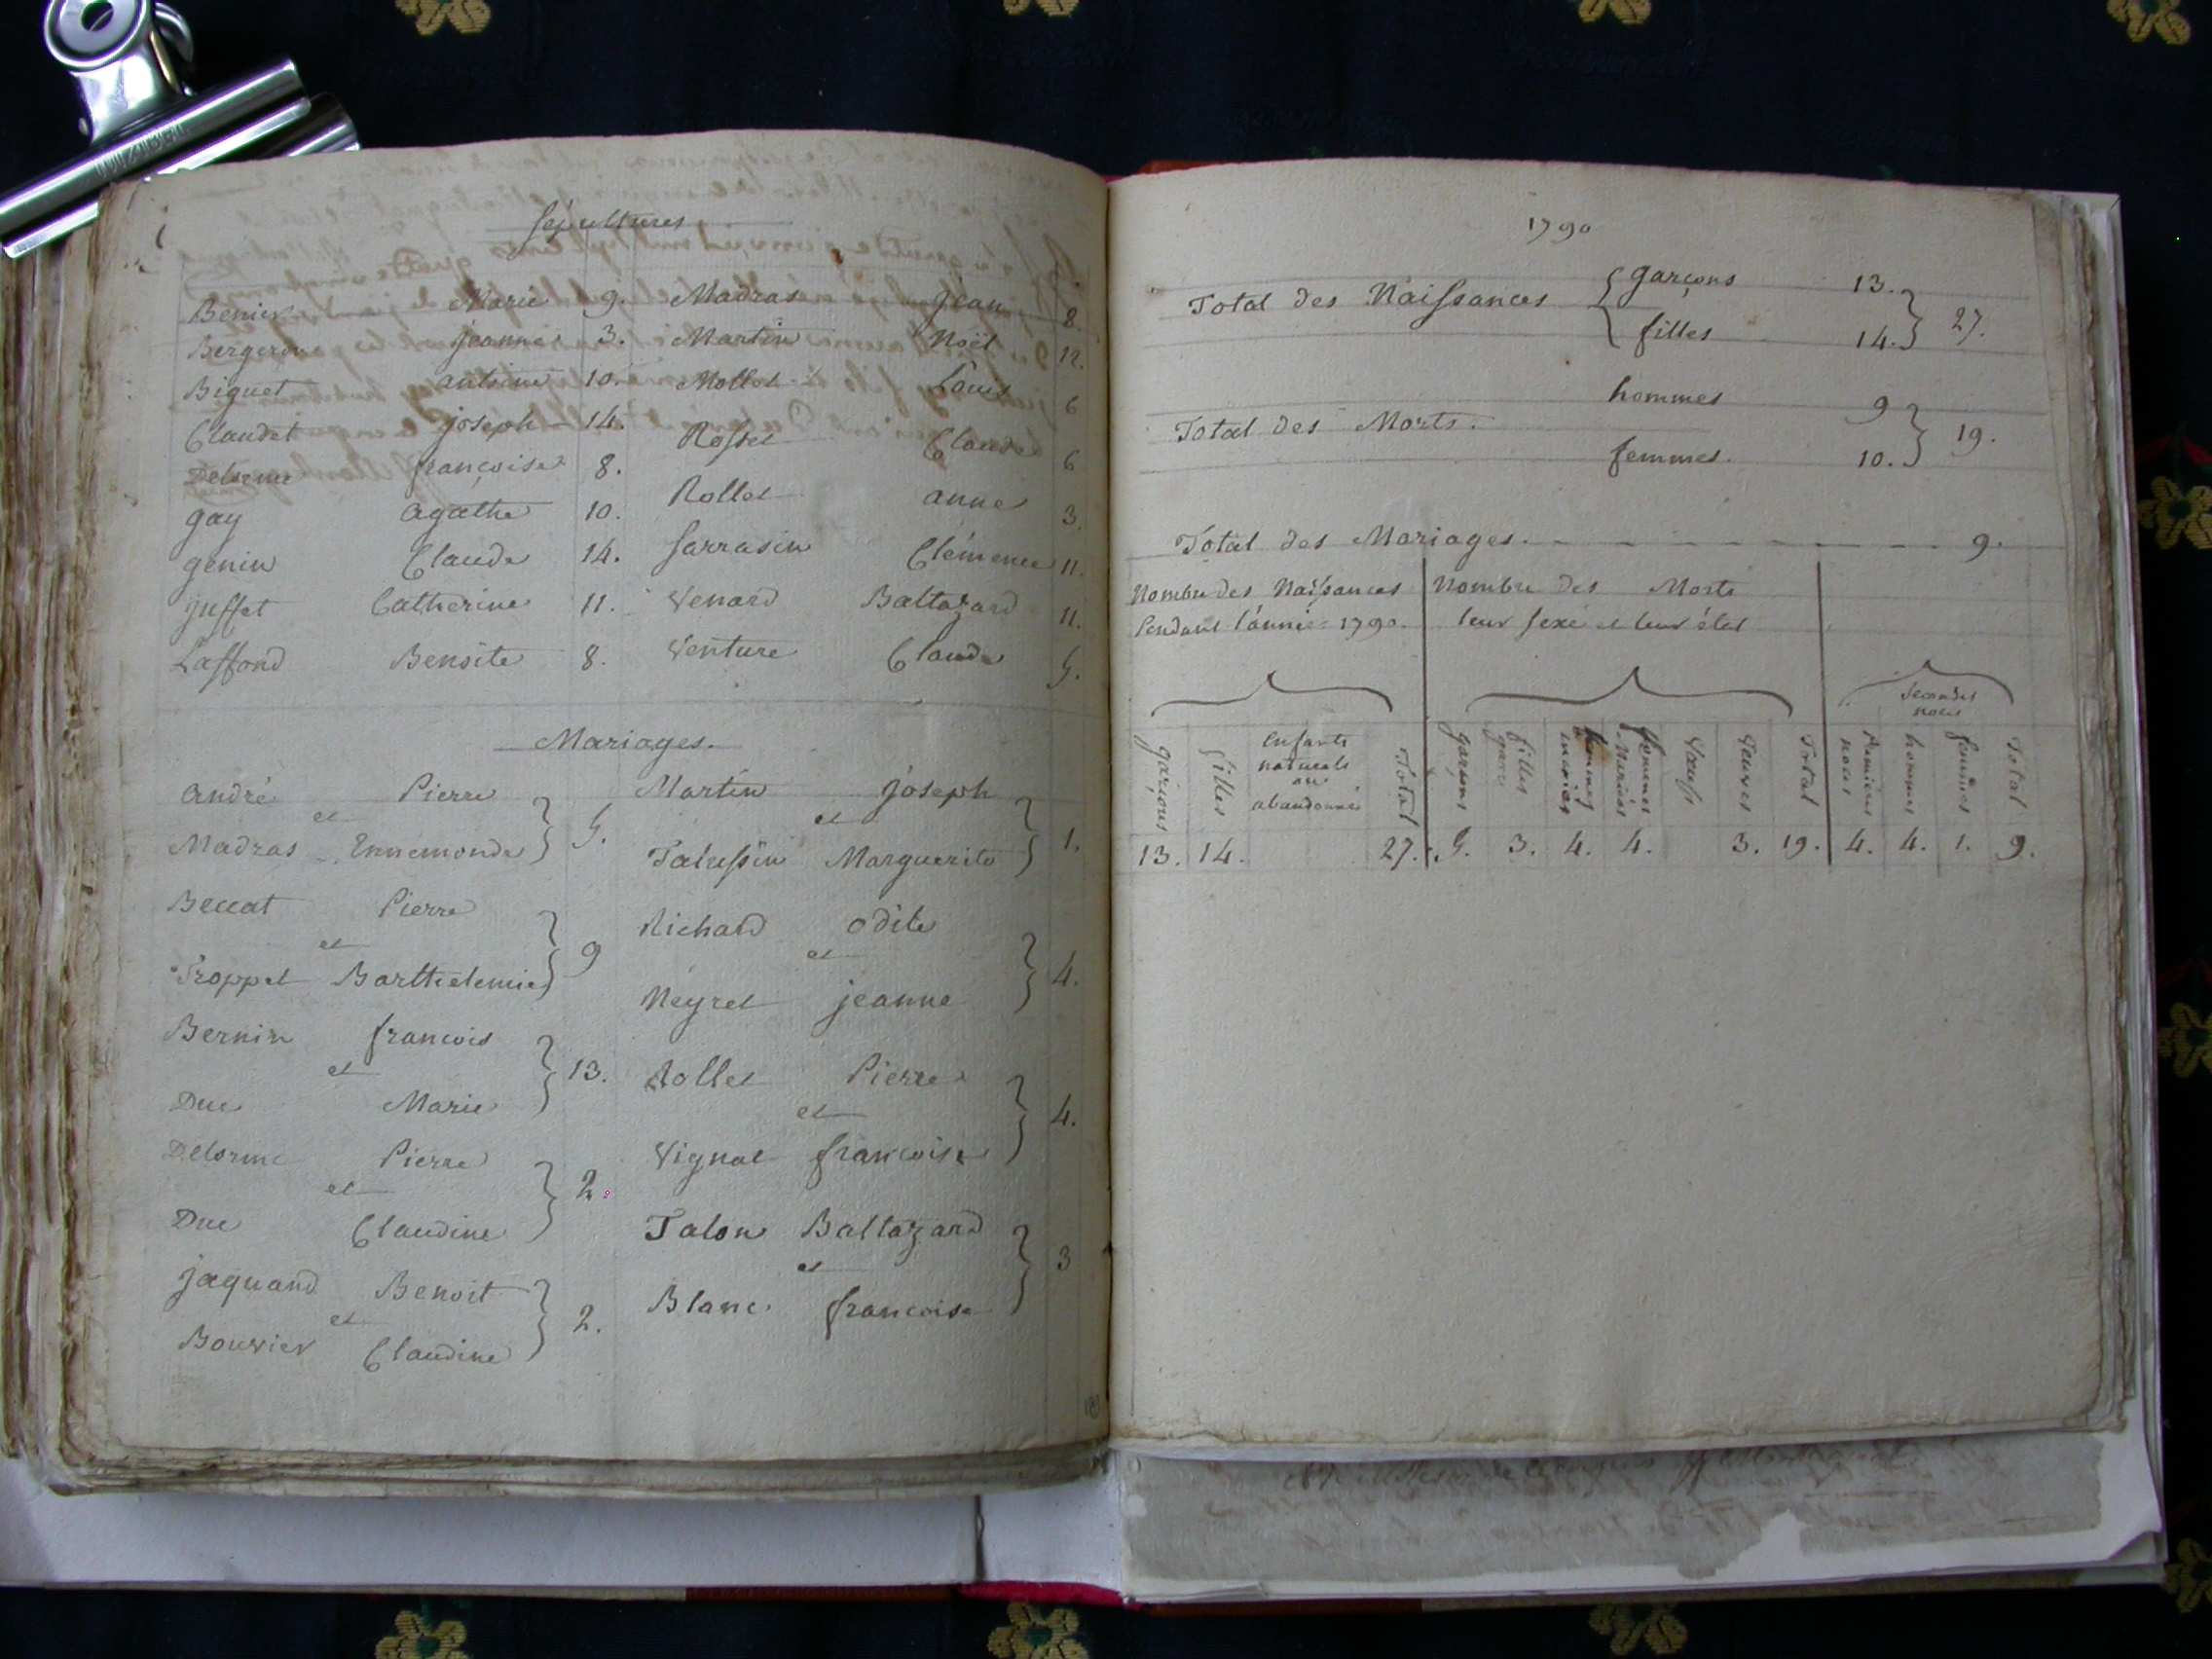 Sépultures
Benier Marie 9. Madras Jean 8.
Bergeron jeanne 3. Martin Noël 12.
Biguet antoine 10. Mollet Louis 6
Claudet joseph 14. Rosset Claude 6
Delorme françoise 8. Rollet anne 3.
gay agathe 10. Sarrasin Clémence 11.
genin Claude 14. Venard Baltazard 11.
juffet Catherine 11. Venture Claude 5.
Laffond Benoite 8.
Mariages.
andré Pierre
et
Madras Ennemonde 5.
Beccat Pierre
et
Troppet Barthelemie 9
Bernin francois
et
Duc Marie 13.
Delorme Pierre
et
Duc Claudine 2.
jaquand Benoit
et
Bouvier Claudine 2.
Martin joseph
et
Talussin Marguerite 1.
Richard odile
et
Neyret jeanne 4.
Rollet Pierre
et
Vignal francoise 4.
Talon Baltazard
et
Blanc francoise 3
1790
Total des Naissances garçons 13.
filles 14. 27.
hommes 9
Total des Morts. 19.
femmes. 10.
Total des Mariages. 9.
Nombre des Naissances Nombre des Morts
Pendant l'année 1790. leur sexe et leur état
secondes
noces
garçons filles Enfants naturels ou abandonnés Total garçons filles hommes mariés femmes mariées Veufs Veuves Total Premières noces hommes femmes Total
13. 14. 27. 5. 3. 4. 4. 3. 19. 4. 4. 1. 9.